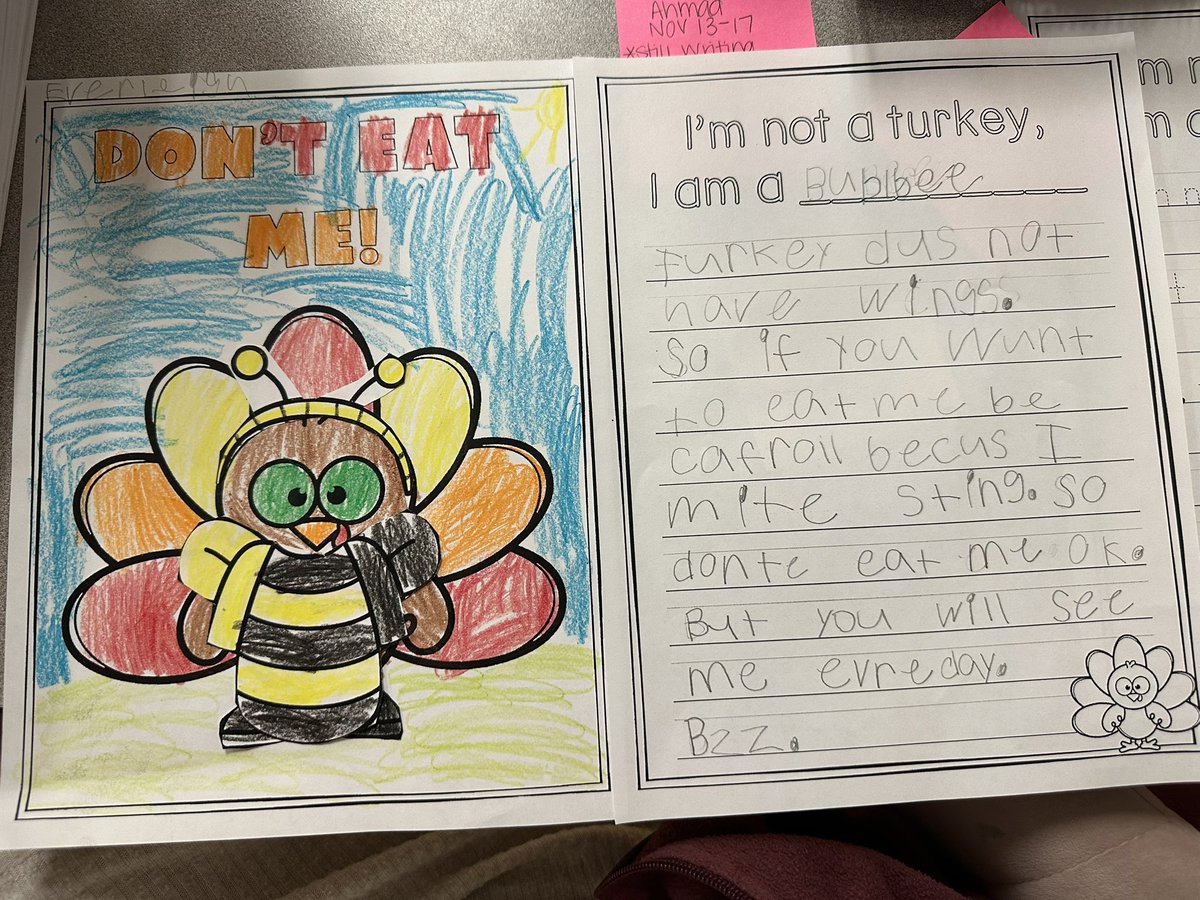 Ahmad
Nov 13-17
*still writing
DON'T EAT
ME!
I'm not a turkey,
I am a Bubbee
Turkey dus not
have wings.
So if you wunt
to eat me be
cafroil becus I
mite sting. so
donte eat me ok.
But you will see
me evreday.
Bzz.